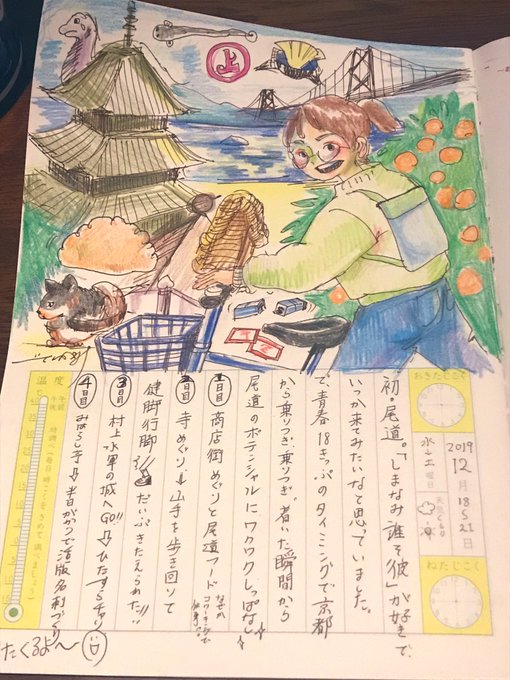 上
初・尾道。「しまなみ誰そ彼」が好きで、
いつか来てみたいなと思っていました。
で、青春18きっぷのタイミングで京都
から乗りつぎ乗りつぎ。着いた瞬間から
尾道のポテンシャルにワクワクしっぱなし
1日目 商店街めぐりと尾道フード
なぜかコワーキングで仕事!!
2日目 寺めぐり↓山手を歩き回りて
健脚行脚 だいぶきたえられた!!
3日目 村上水軍の城へGO!!⇩ひたすらチャリ
4日目 みはらし亭⇩昔ながらの活版名刺づくり
たくるよ〜
おきたじこく
2019
12月
18
21日
水
土
曜日
天気
ねたじこく
温度
午前
午後
時調べ(毎日時こくをきめて調べましょう)